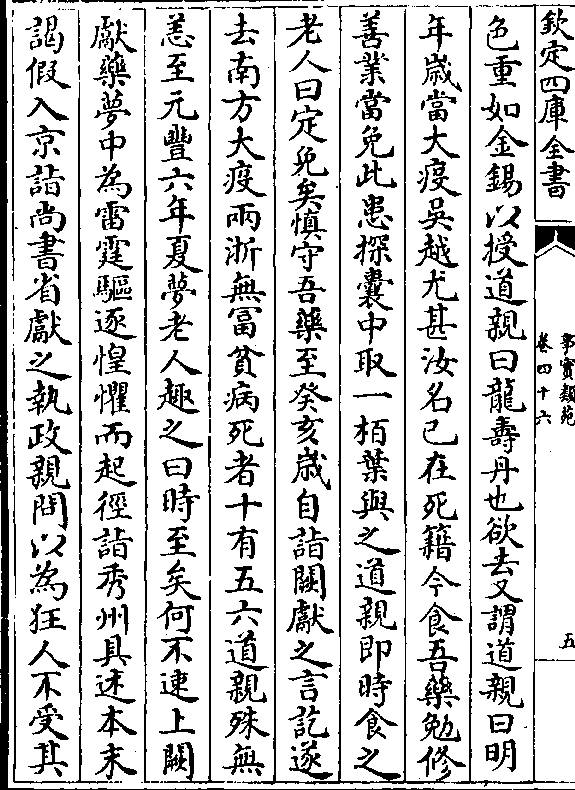 欽定四庫全書
事實類苑
卷四十六
五
色重如金錫以授道親曰龍壽丹也欲去又謂道親曰明
年歲當大疫吳越尤甚汝名已在死籍今食吾藥勉修
善業當免此患探囊中取一栢葉與之道親即時食之
老人曰定免矣慎守吾藥至癸亥歲自詣闕獻之言訖遂
去南方大疫兩浙無冨貧病死者十有五六道親殊無
恙至元豐六年夏夢老人趣之曰時至矣何不速上闕
獻藥夢中為雷霆驅逐惶懼而起徑詣秀州具述本末
謁假入京詣尚書省獻之執政親問以為狂人不受其